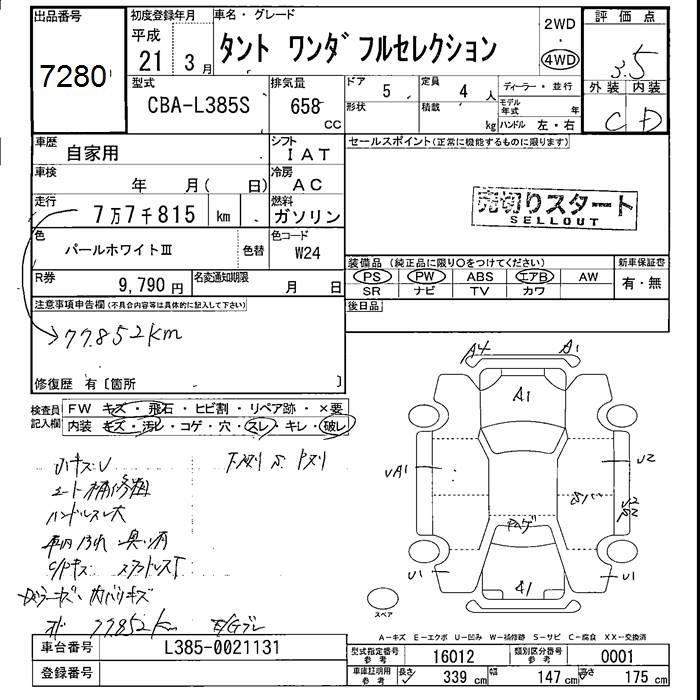 出品番号
7280
初度登録年月
平成
21 3月
車名・グレード
タント ワンダフルセレクション
2WD
4WD
評価点
3.5
外装 内装
C D
型式
CBA-L385S
排気量
658 CC
ドア 5
形状
定員 4 人
積載 kg
ディーラー・並行
モデル年式 年
ハンドル 左・右
車歴
自家用
シフト
IAT
セールスポイント(正常に機能するものに限ります)
車検
年 月( 日)
冷房
AC
走行
7万7千815 km
燃料
ガソリン
売切りスタート
SELLOUT
色
パールホワイトⅢ
色替
色コード
W24
R券
9,790円
名変通知期限
月 日
装備品 (純正品に限り○をつけてください)
新車保証書
PS PW ABS エアB AW
SR ナビ TV カワ
有・無
後日品
注意事項申告欄(不具合内容等は具体的に記入して下さい)
77.852km
修復歴 有〔箇所 〕
検査員
記入欄
FW キズ・飛石・ヒビ割・リペア跡・×要
内装 キズ・汚レ・コゲ・穴・スレ・キレ・破レ
小キズU
シート補修粗
ハンドルスレ大
77852km
A4 A1
A1
UA1
U2
U2
U1
A1
U1
スペア
A-キズ E-エクボ U-凹み W-補修跡 S-サビ C-腐食 XX-交換済
車台番号
L385-0021131
登録番号
型式指定番号
参考
16012
類別区分番号
参考
0001
車庫証明用
参考
長さ 339 cm
幅 147 cm
高さ 175 cm